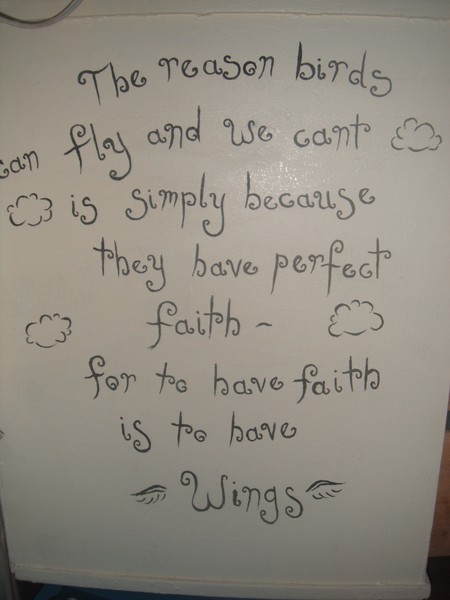 The reason birds
can fly and we cant
is simply because
they have perfect
faith ~
for to have faith
is to have
Wings